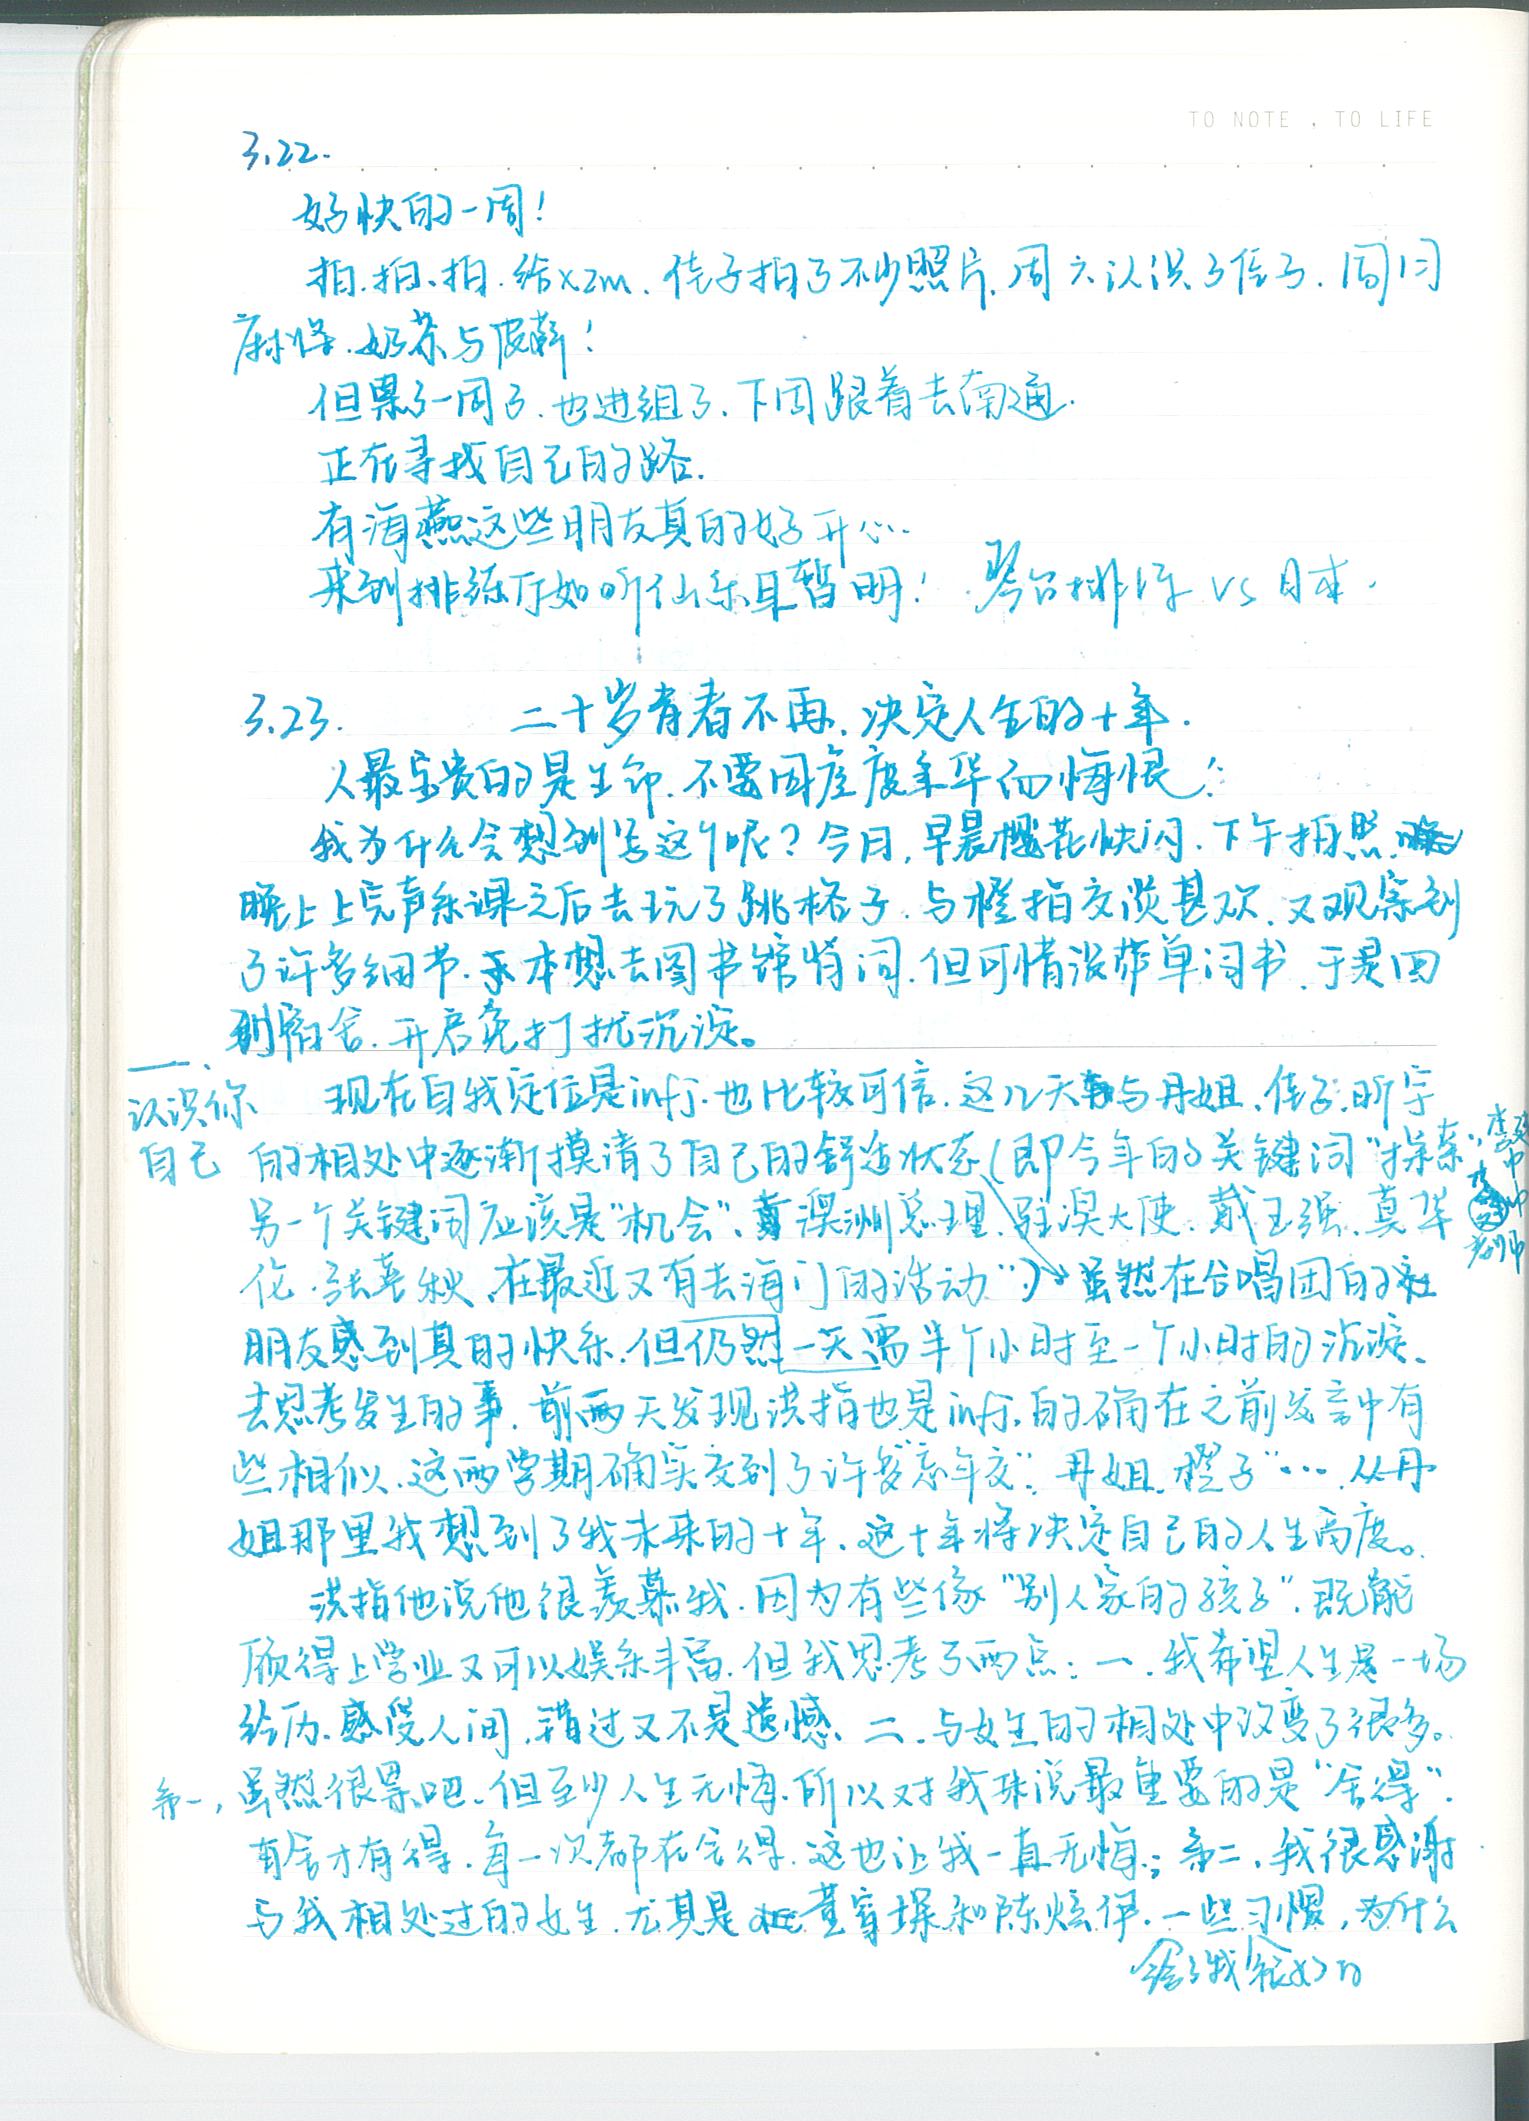 TO NOTE , TO LIFE
3.22.
好快的一周!
拍.拍.拍.给xzm.佳子拍了不少照片.周六认识了信子.同门
麻烙.奶茶与披萨!
但累了一周了.也进组了.下周跟着去南通.
正在寻找自己的路.
有海燕这些朋友真的好开心..
来到排练厅如听仙乐耳暂明! 琴台排练 vs 日本.
3.23. 二十岁青春不再.决定人生的十年.
人最宝贵的是生命.不要因虚度年华而悔恨!
我为什么会想到写这个呢?今日,早晨樱花快闪.下午拍照
晚上上完声乐课之后去玩了跳格子.与橙指交谈甚欢.又观察到
了许多细节.本想去图书馆背词.但可惜没带单词书.于是回
到宿舍.开启免打扰沉淀。
一.
认识你
自己
现在自我定位是infj.也比较可信.这几天与丹姐.佳子.昕宇
的相处中逐渐摸清了自己的舒适状态(即今年的关键词"探索",
另一个关键词应该是"机会".澳洲总理.驻澳大使.戴玉强.莫华
伦.张英秋.在最近又有去海门的活动")虽然在合唱团的社
朋友感到真的快乐.但仍然一天需半个小时至一个小时的沉淀.
去思考发生的事.前两天发现洪指也是infj.的确在之前发言中有
些相似.这两学期确实交到了许多"忘年交".丹姐.橙子"... 从丹
姐那里我想到了我未来的十年.这十年将决定自己的人生高度。
洪指他说他很羡慕我.因为有些像"别人家的孩子".既能
顾得上学业又可以娱乐丰富.但我思考了两点:一.我希望人生是一场
经历.感受人间,错过又不是遗憾.二.与女生的相处中改变了很多。
第一,虽然很累吧.但至少人生无悔.所以对我来说最重要的是"舍得".
有舍才有得.每一次都在舍得.这也让我一直无悔;第二.我很感谢
与我相处过的女生.尤其是董和陈炫伊.一些习惯,为什么
给了我很好的